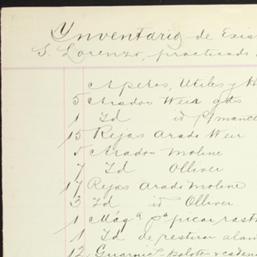 Inventario de Exis
S. Lorenzo, practicado
Aperos, Utiles y H
5 Arados Weir gds
1 Id id 1 mance
15 Rejas Arado Weir
5 Arados Moline
7 Id Olliver
17 Rejas Arado Moline
3 Id id Olliver
1 Máqa pa picar rast
1 Id de restirar alam
12 Guarnics